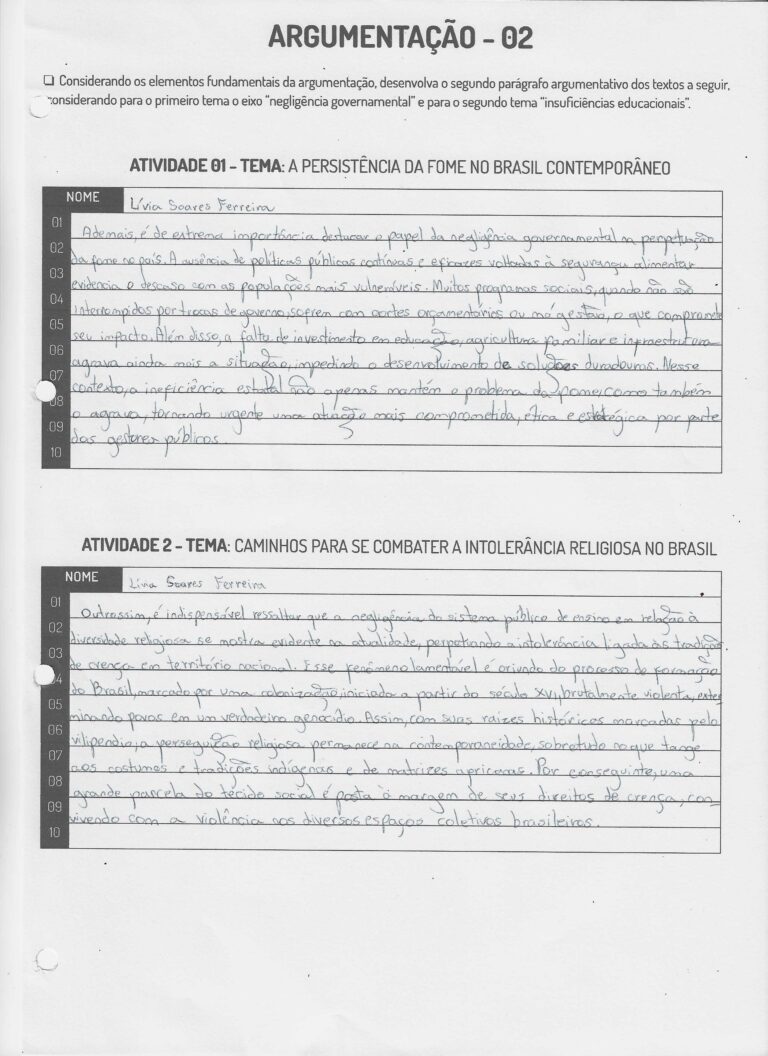 ARGUMENTAÇÃO – 02
❑ Considerando os elementos fundamentais da argumentação, desenvolva o segundo parágrafo argumentativo dos textos a seguir,
considerando para o primeiro tema o eixo "negligência governamental" e para o segundo tema "insuficiências educacionais".
ATIVIDADE 01 – TEMA: A PERSISTÊNCIA DA FOME NO BRASIL CONTEMPORÂNEO
NOME Lívia Soares Ferreira
01 Ademais, é de extrema importância destacar o papel da negligênia governamental na perpetuação
02 da fome no país. A ausência de políticas públicas contínuas e eficazes voltadas à segurança alimentar
03 evidencia o descaso com as populações mais vulneráveis. Muitos programas sociais, quando não são
04 interrompidos por trocas de governo, sofrem com cortes orçamentários ou má gestão, o que compromete
05 seu impacto. Além disso, a falta de investimento em educação, agricultura familiar e infraestrutura
06 agrava ainda mais a situação, impedindo o desenvolvimento de soluções duradouras. Nesse
07 contexto, a ineficiência estatal não apenas mantém o problema da fome, como também
08 o agrava, tornando urgente uma atuação mais comprometida, ética e estratégica por parte
09 dos gestores públicos.
10
ATIVIDADE 2 – TEMA: CAMINHOS PARA SE COMBATER A INTOLERÂNCIA RELIGIOSA NO BRASIL
NOME Lívia Soares Ferreira
01 Outrossim, é indispensável ressaltar que a negligência do sistema público de ensino em relação à
02 diversidade religiosa se mostra evidente na atualidade, perpetuando a intolerância ligada às tradições
03 de crença em território nacional. Esse fenômeno lamentável é oriundo do processo de formação
04 do Brasil, marcado por uma colonização, iniciada a partir do século XVI, brutalmente violenta, exter
05 minando povos em um verdadeiro genocídio. Assim, com suas raízes históricas marcadas pelo
06 vilipêndio, a perseguição religiosa permanece na contemporaneidade, sobretudo no que tange
07 aos costumes e tradições indígenas e de matrizes africanas. Por conseguinte, uma
08 grande parcela do tecido social é posta à margem de seus direitos de crença, con
09 vivendo com a violência nos diversos espaços coletivos brasileiros.
10